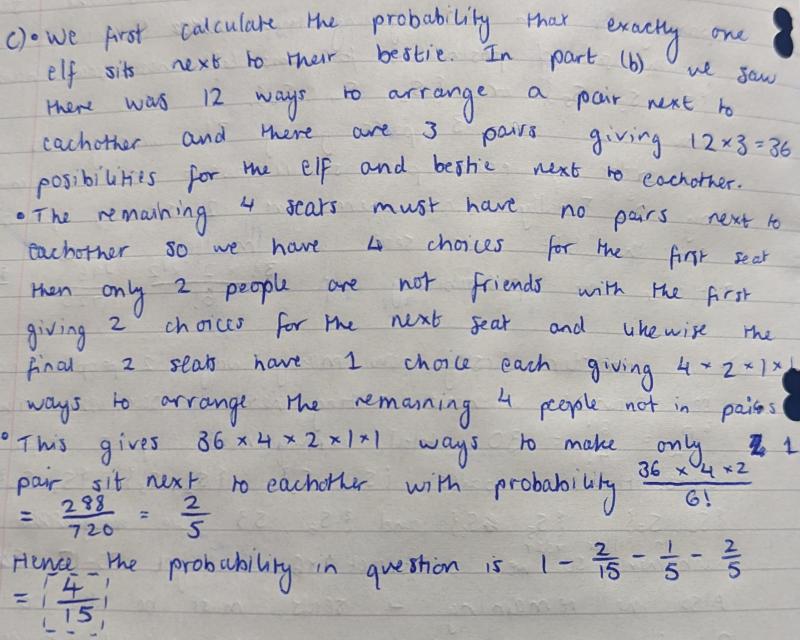 c)• We first calculate the probability that exactly one
elf sits next to their bestie. In part (b) we saw
there was 12 ways to arrange a pair next to
eachother and there are 3 pairs giving 12×3=36
posibilities for the elf and bestie next to eachother.
• The remaining 4 seats must have no pairs next to
eachother so we have 4 choices for the first seat
then only 2 people are not friends with the first
giving 2 choices for the next seat and likewise the
final 2 seats have 1 choice each giving 4 × 2 × 1 × 1
ways to arrange the remaining 4 people not in pairs
• This gives 36 × 4 × 2 × 1 × 1 ways to make only 1
pair sit next to eachother with probability (36 × 4 × 2)/6!
= 288/720 = 2/5
Hence the probability in question is 1 - 2/15 - 1/5 - 2/5
= 4/15